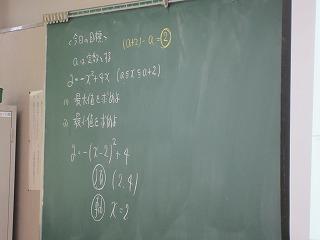 <今日の目標>
(a+2)-a=②
aは定数とする
y=-x²+4x (a≦x≦a+2)
(1) 最大値を求めよ
(2) 最小値を求めよ
y=-(x-2)²+4
頂 (2,4)
軸 x=2